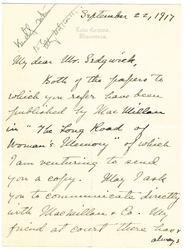 September 22, 1917
My dear Mr. Sedgwick,
Both of the papers to
which you refer have been
published by MacMillan
in "The Long Road of
Woman's Memory" of which
I am venturing to send
you a copy. May I ask
you to communicate directly
with Macmillan & Co. My
friend at court there has
always